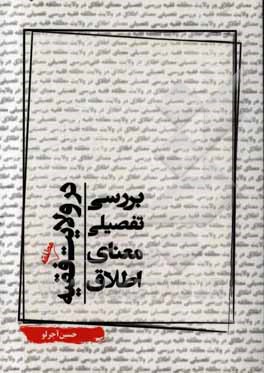 بررسی
تفصیلی
معنای
اطلاق
در ولایت مطلقه فقیه
حسن آجرلو